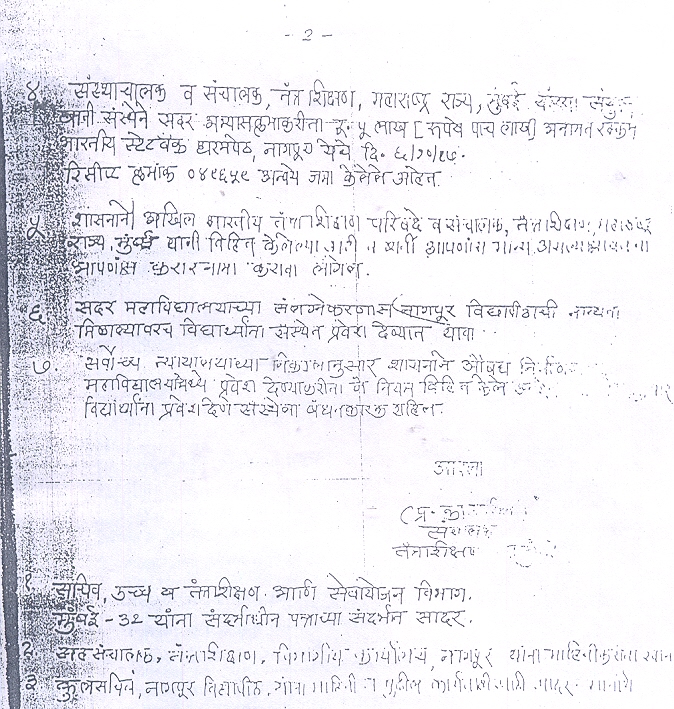 - 2 -
४. संस्थाचालक व संचालक, तंत्र शिक्षण, महाराष्ट्र राज्य, मुंबई यांच्या संयुक्त
नावी संस्थेने सदर अभ्यासक्रमाकरीता रु. ५ लाख [रूपये पाच लाख] अनामत रक्कम
भारतीय स्टेटबँक धरमपेठ, नागपूर येथे दि.
रिसीप्ट क्रमांक ०४९६५९ अन्वये जमा केलेले आहेत.
५. शासनाने अखिल भारतीय तंत्रशिक्षण परिषदे व संचालक, तंत्रशिक्षण, महाराष्ट्र
राज्य, मुंबई यांनी विहित केलेल्या अटी व शर्ती आपणांस मान्य
आपणांस करारनामा करावा लागेल.
६. सदर महाविद्यालयाच्या संलग्नेकरणास नागपूर विद्यापीठाची मान्यता
मिळाल्यावरच विद्यार्थ्यांना संस्थेत प्रवेश देण्यात यावा.
७. सर्वोच्च न्यायालयाच्या निकालानुसार शासनाने औषध
महाविद्यालयामध्ये प्रवेश देण्याकरीता जे नियम विहित केले
विद्यार्थ्यांना प्रवेश देणे संस्थेला बंधनकारक राहिल.
आपला
संचालक
तंत्रशिक्षण
१. सचिव, उच्च व तंत्रशिक्षण आणि सेवायोजन विभाग.
मुंबई - ३२ यांना संदर्भाधीन पत्राच्या संदर्भात सादर.
२. सहसंचालक, तंत्रशिक्षण, विभागीय कार्यालय, नागपूर यांना माहितीकरीता
३. कुलसचिव, नागपूर विद्यापीठ, यांना माहिती व पुढील कार्यवाहीसाठी सादर